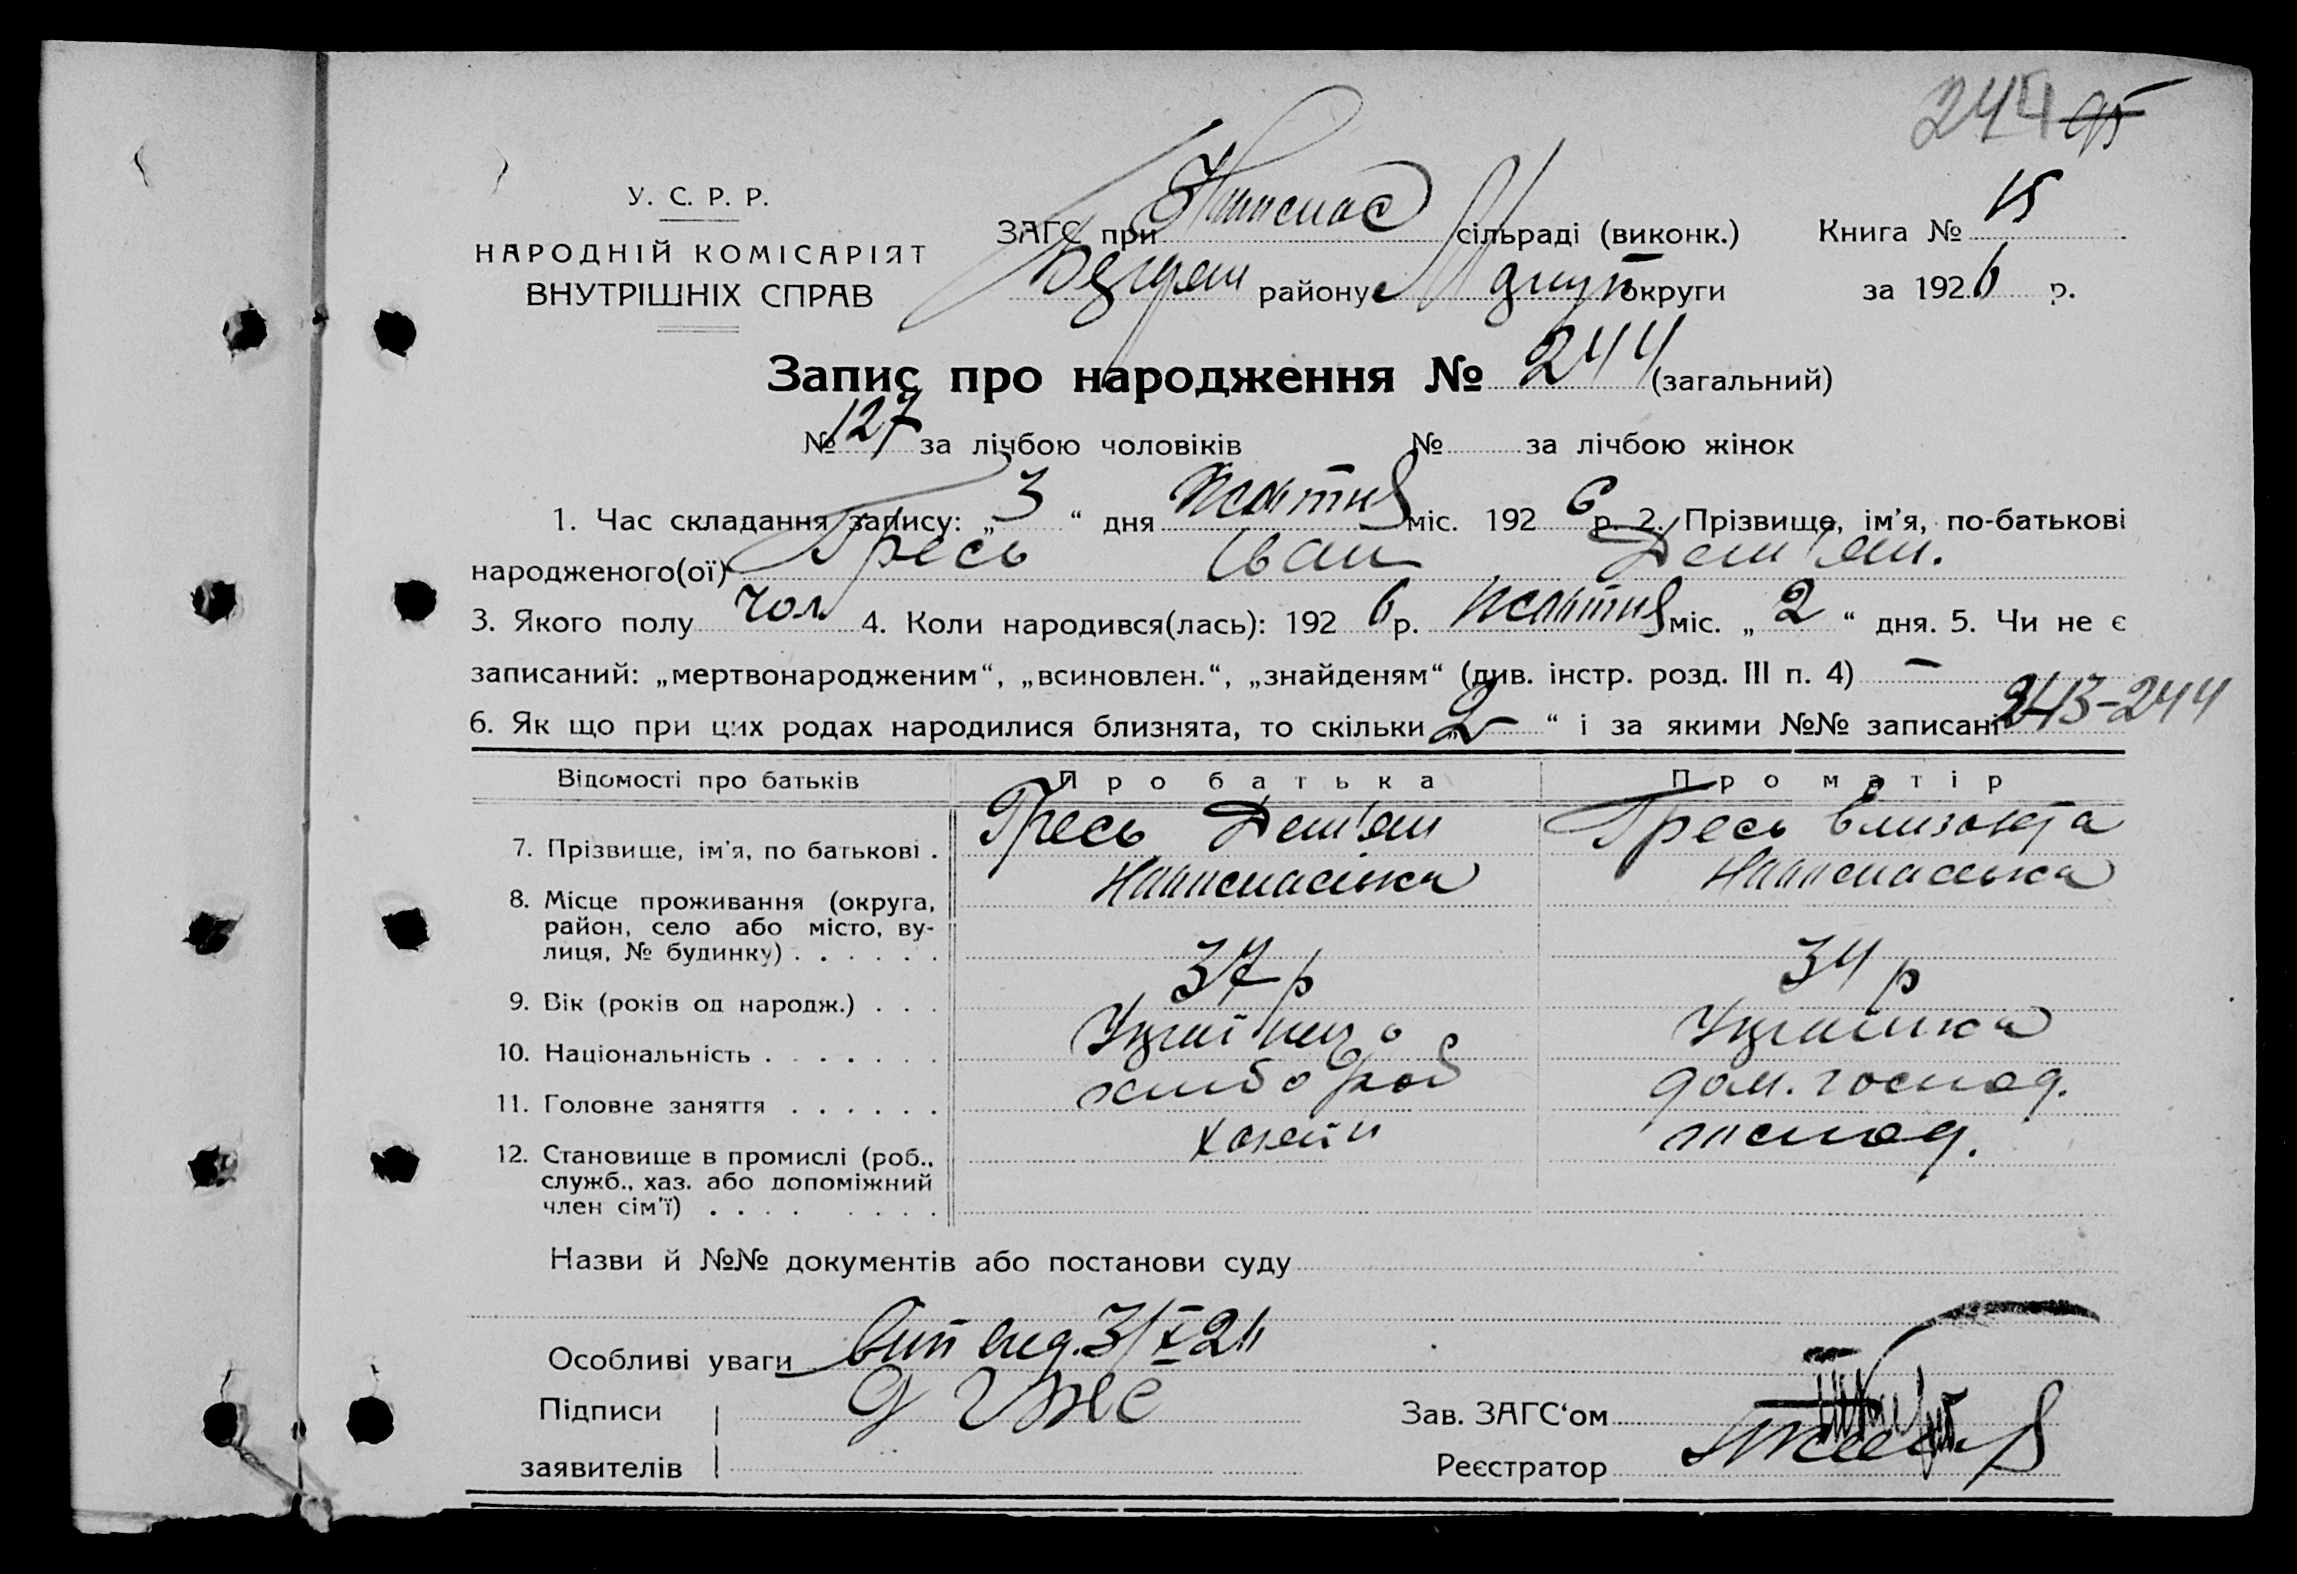 244 95
У. С. Р. Р.
НАРОДНІЙ КОМІСАРІЯТ
ВНУТРІШНІХ СПРАВ
ЗАГС при сільраді (виконк.)
району округи
Книга № 15
за 1926 р.
Запис про народження № 244 (загальний)
№ 127 за лічбою чоловіків № за лічбою жінок
1. Час складання запису: „3“ дня жовтня міс. 1926 р. 2. Прізвище, ім'я, по-батькові
народженого(ої) Гресь Іван Дем'ян.
3. Якого полу чол 4. Коли народився(лась): 1926 р. жовтня міс. „2“ дня. 5. Чи не є
записаний: „мертвонародженим“, „всиновлен.“, „знайденям“ (див. інстр. розд. III п. 4) —
6. Як що при цих родах народилися близнята, то скільки „2“ і за якими №№ записані 243-244
Відомості про батьків Про батька Про матір
7. Прізвище, ім'я, по батькові . Гресь Дем'ян Гресь Єлизавета
8. Місце проживання (округа,
район, село або місто, ву-
лиця, № будинку) . . . . . .
9. Вік (років од народж.) . . . 37 р 34 р
10. Національність . . . . . . . Українець Українка
11. Головне заняття . . . . . . хлібороб дом. господ.
12. Становище в промислі (роб.,
служб., хаз. або допоміжний
член сім'ї) . . . . . . . . хазяїн господ.
Назви й №№ документів або постанови суду
Особливі уваги 3/X 26
Підписи
заявителів
Д Гресь
Зав. ЗАГС'ом
Реєстратор